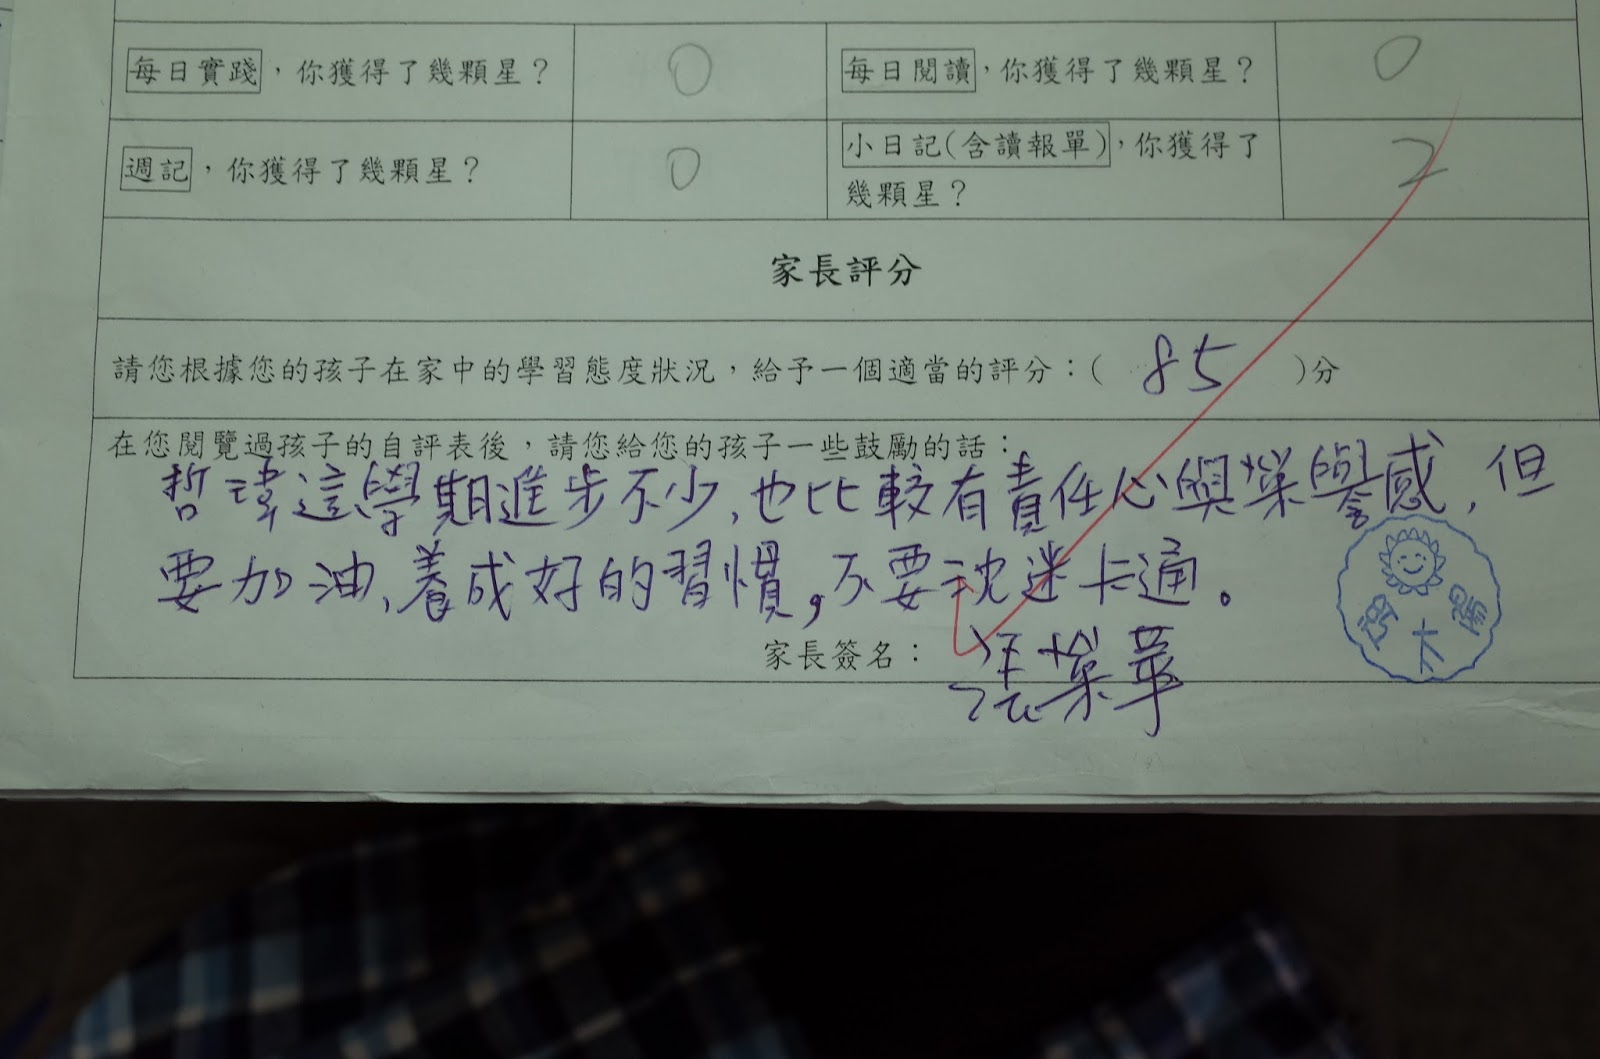 每日實踐，你獲得了幾顆星？ 0 每日閱讀，你獲得了幾顆星？ 0
週記，你獲得了幾顆星？ 0 小日記(含讀報單)，你獲得了
幾顆星？ 2
家長評分
請您根據您的孩子在家中的學習態度狀況，給予一個適當的評分：( 85 )分
在您閱覽過孩子的自評表後，請您給您的孩子一些鼓勵的話：
哲瑋這學期進步不少，也比較有責任心與榮譽感，但
要加油，養成好的習慣，不要沈迷卡通。
家長簽名： 張榮華